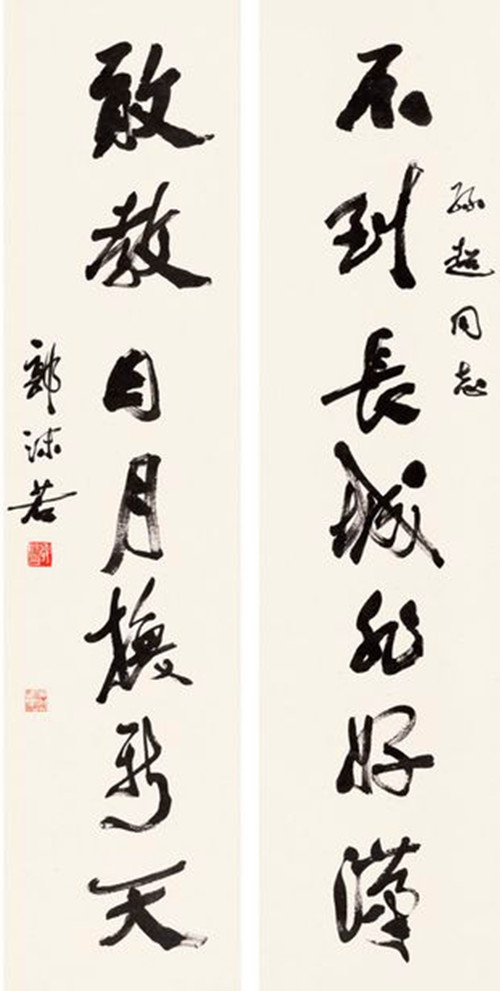 孫超同志
不到長城非好漢
敢教日月換新天
郭沫若